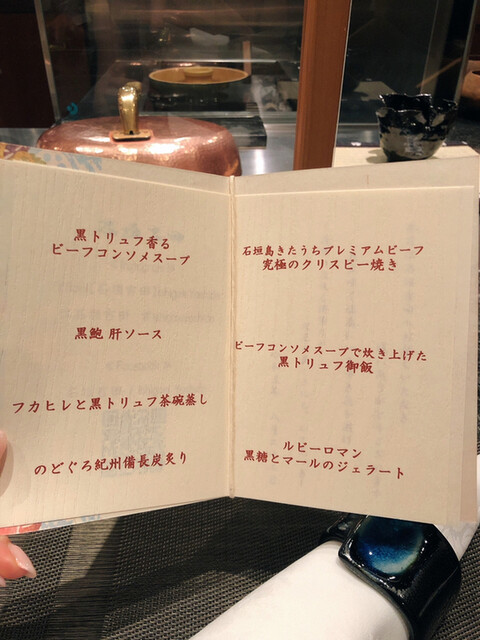 黒トリュフ香る
ビーフコンソメスープ
黒鮑 肝ソース
フカヒレと黒トリュフ茶碗蒸し
のどぐろ紀州備長炭炙り
石垣島きたうちプレミアムビーフ
究極のクリスピー焼き
ビーフコンソメスープで炊き上げた
黒トリュフ御飯
ルビーロマン
黒糖とマールのジェラート